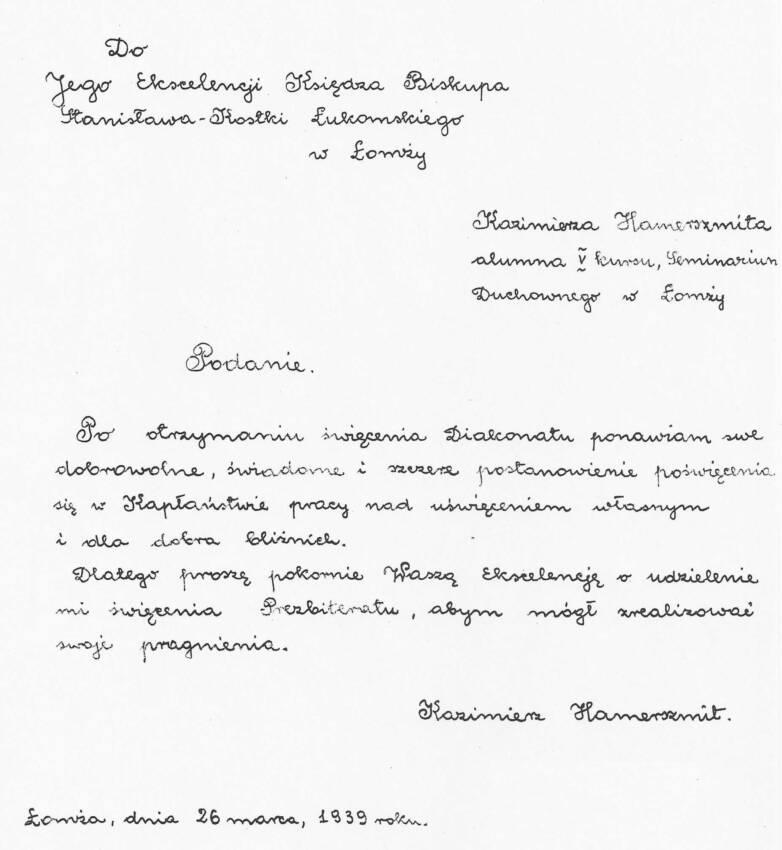 Do
Jego Ekscelencji Księdza Biskupa
Stanisława-Kostki Łukomskiego
w Łomży
Kazimierza Hamerszmita
alumna V kursu, Seminarium
Duchownego w Łomży
Podanie.
Po otrzymaniu święcenia Diakonatu ponawiam swe
dobrowolne, świadome i szczere postanowienie poświęcenia
się w Kapłaństwie pracy nad uświęceniem własnym
i dla dobra bliźnich.
Dlatego proszę pokornie Waszą Ekscelencję o udzielenie
mi święcenia Prezbiteratu, abym mógł zrealizować
swoje pragnienia.
Kazimierz Hamerszmit.
Łomża, dnia 26 marca, 1939 roku.